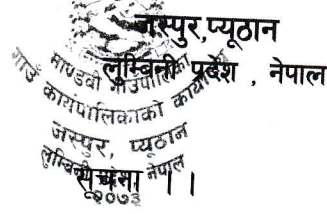 जस्पुर,प्यूठान
लुम्बिनी प्रदेश , नेपाल
माण्डवी गाउँपालिका
गाउँ कार्यपालिकाको कार्यालय
जस्पुर, प्यूठान
लुम्बिनी नेपाल
सूचना ।।
२०७३